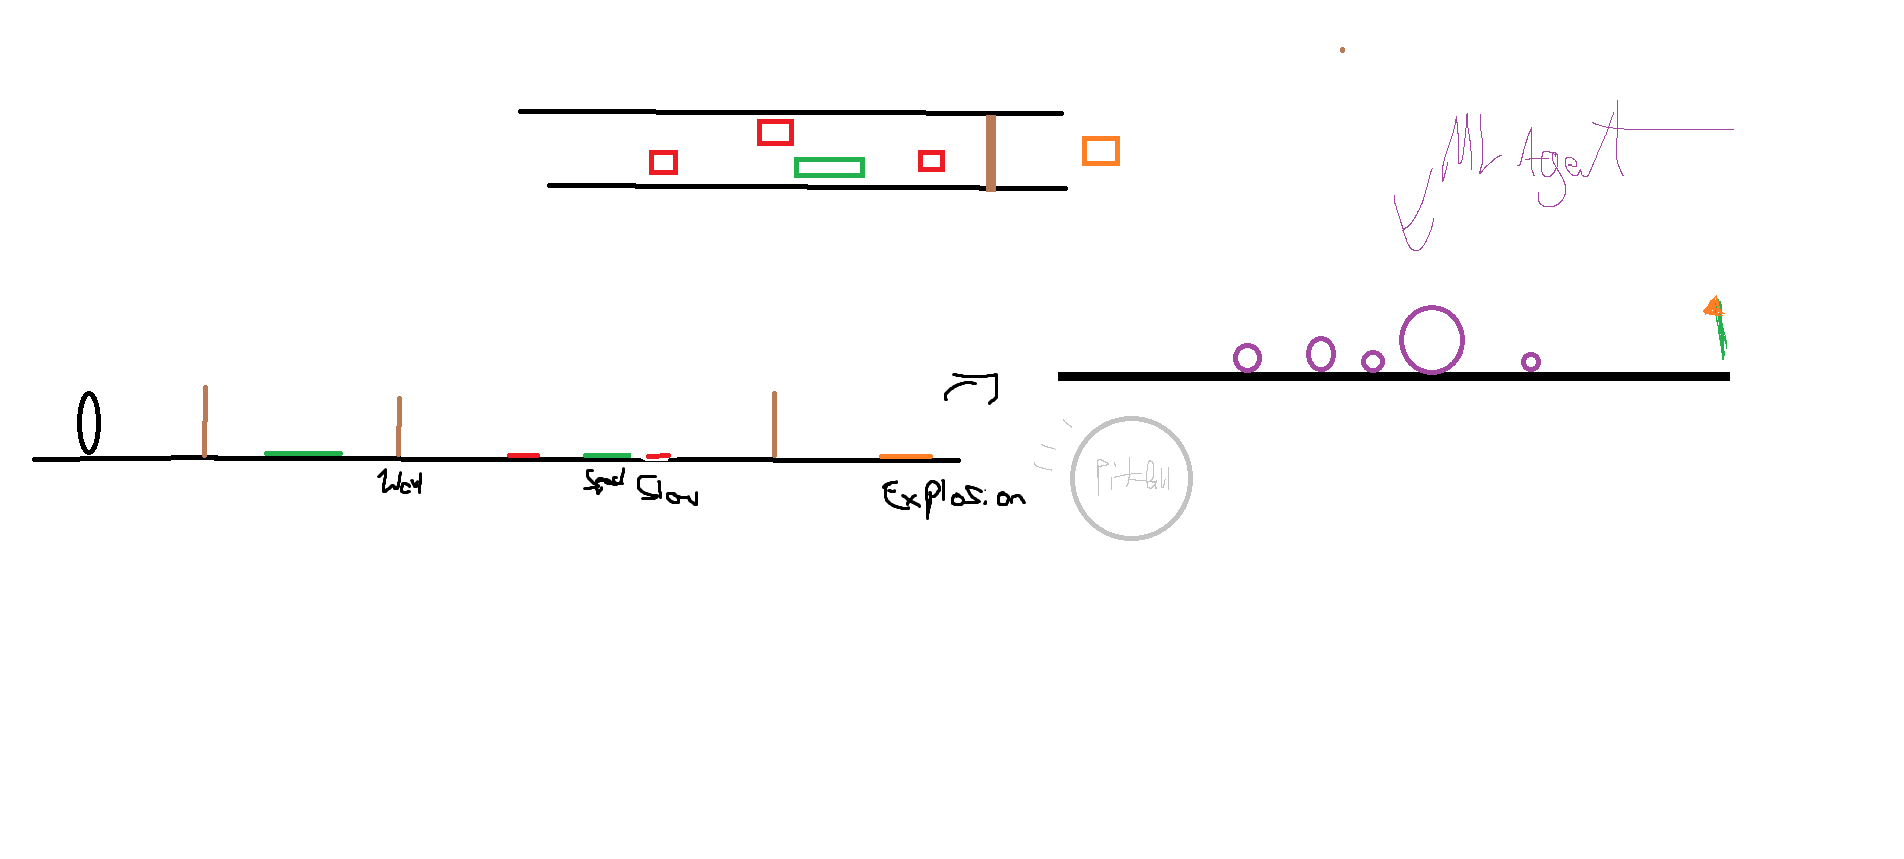 ML Agent
Wall
Speed
Slow
Explosion
Pitfall